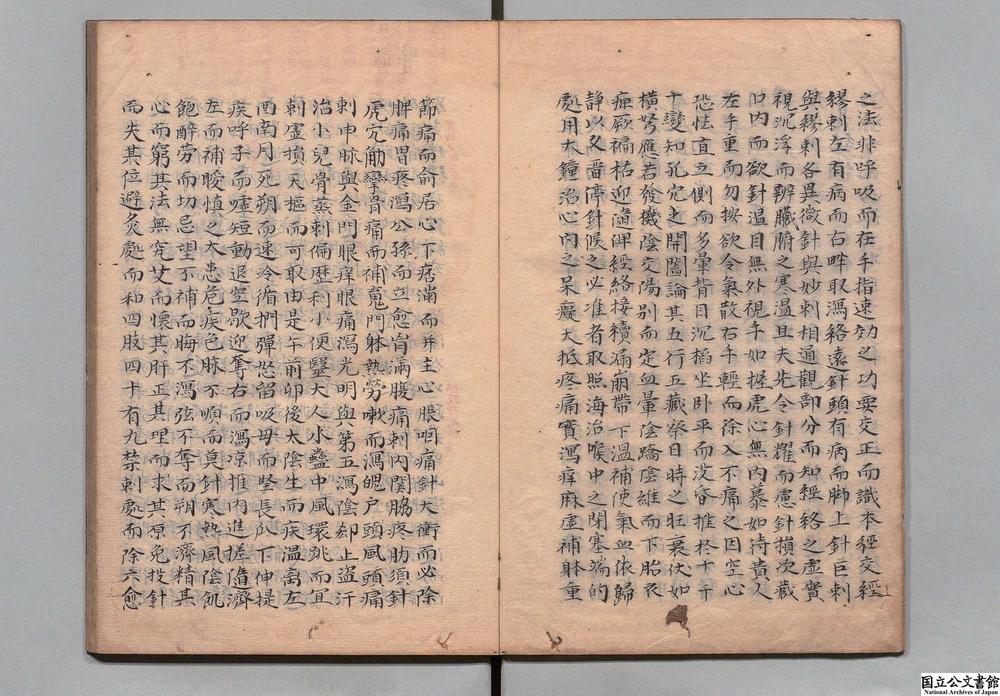 之法非呼吸而在手指速効之功要交正而識本經交經
繆刺左有病而右畔取瀉絡遠針頭有病而脚上針巨刺
與繆刺各異微針與妙刺相通觀部分而知經絡之虛實
視沉浮而辨臟腑之寒溫且夫先令針耀而慮針損次藏
口内而欲針溫目無外視手如握虎心無内慕如待貴人
左手重而勿按欲令氣散右手輕而徐入不痛之因空心
恐怯直立側而多暈背目沉搯坐卧平而没昏推於十干
十變知孔穴之開闔論其五行五藏察日時之旺衰伏如
橫弩應若發機陰交陽别而定血暈陰蹻陰維而下胎衣
痺厥褊枯迎隨俾經絡接續漏崩帶下溫補使氣血依歸
静以久畱停針候之必准者取照海治喉中之閉塞端的
處用大鐘治心内之呆癡大抵疼痛實瀉痒麻虛補躰重
節痛而俞居心下痞滿而井主心脹咽痛針大衝而必除
脾痛胃疼瀉公孫而立愈胷滿腹痛刺内関脇疼肋須針
虎穴觔攣骨痛而補魂門躰熱勞嗽而瀉魄户頭風頭痛
刺申脉與金門眼痒眼痛瀉光明與第五瀉陰郄上盗汗
治小兒骨蒸刺偏歴利小便醫大人水蠱中風環跳而宜
刺虛損天樞而可取由是午前卯後大陰生而疾溫离左
酉南月死朔而速冷循捫彈怒留吸母而堅長爪下伸提
疾呼子而嘘短動退空歇迎奪右而瀉凉推内進搓隨濟
左而補暖慎之大患危疾色脉不順而莫針寒熱風陰飢
飽醉勞而切忌望不補而晦不瀉弦不奪而朔不濟精其
心而窮其法無究艾而懐其肝正其理而求其原免投針
而失其位避灸處而和四肢四十有九禁刺處而除六愈
国立公文書館
National Archives of Japan